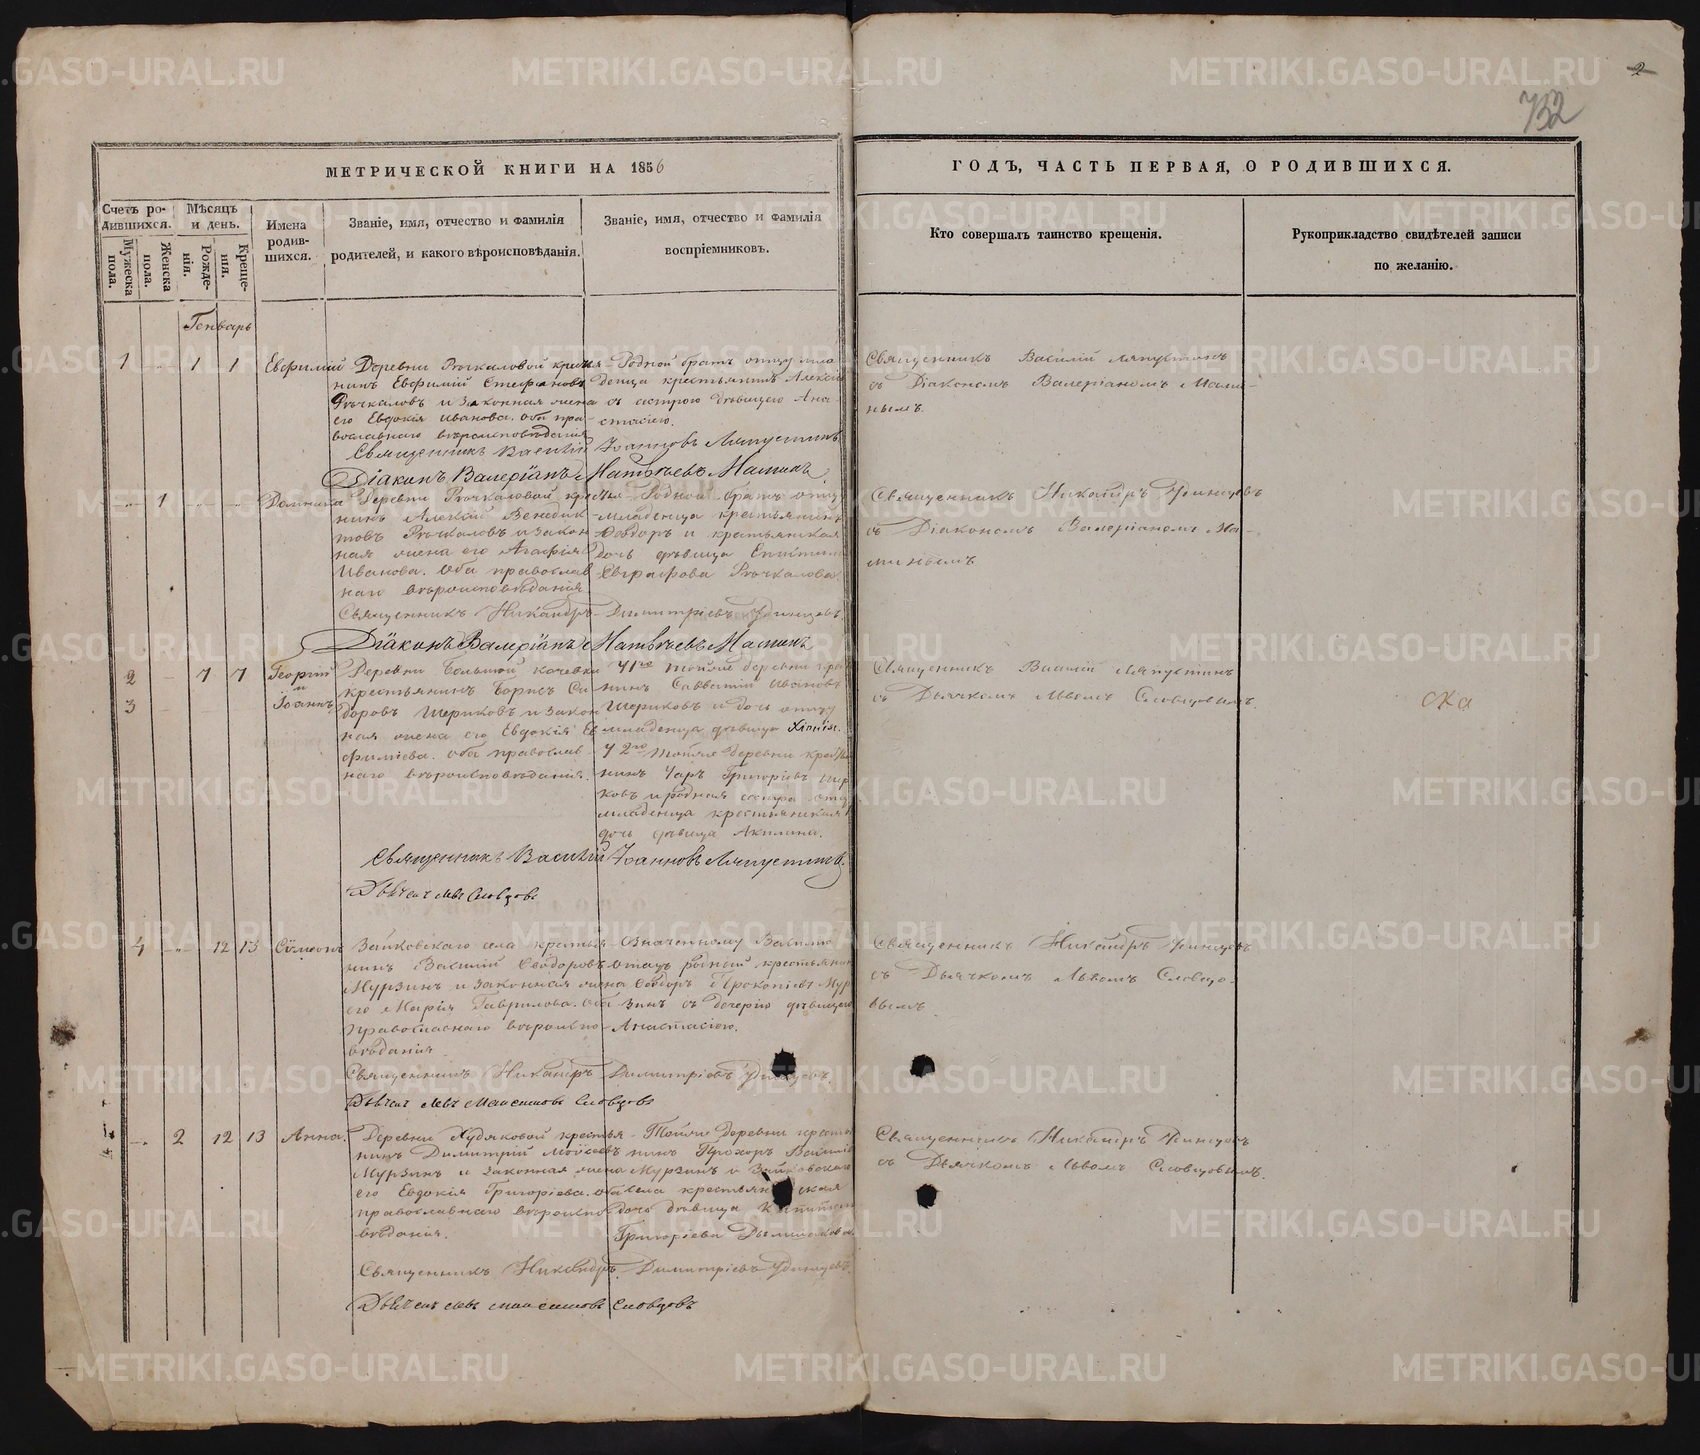 2
732
МЕТРИЧЕСКОЙ КНИГИ НА 1856
ГОДЪ, ЧАСТЬ ПЕРВАЯ, О РОДИВШИХСЯ.
Счетъ ро-
дившихся.
Мужеска пола.
Женска пола.
Мѣсяцъ
и день.
Рожде-
нія.
Креще-
нія.
Имена
родив-
шихся.
Званіе, имя, отчество и фамилія
родителей, и какого вѣроисповѣданія.
Званіе, имя, отчество и фамилія
воспріемниковъ.
Кто совершалъ таинство крещенія.
Рукоприкладство свидѣтелей записи
по желанію.
Генварь
1 1 1
Евфимій
Деревни Рычкаловой кресть
нинъ Евфимій Стефановъ
Рычкаловъ и законная жена
его Евдокія Иванова. оба пра-
вославнаго вѣроисповѣданія
Родной братъ отцу мла
денца крестьянинъ Алексій
съ сестрою дѣвицею Ана
стасіею.
Священникъ Василій Ляпустинъ
съ Діакономъ Валеріаномъ Мами-
нымъ.
Священникъ Василій Іоанновъ Ляпустинъ
Діаконъ Валеріанъ Матвѣевъ Маминъ
1
Домника
Деревни Рычкаловой кресть
нинъ Алексій Венедик
товъ Рычкаловъ и закон
ная жена его Агафія
Иванова. Оба православ
наго вѣроисповѣданія
Родной братъ отцу
младенца крестьянинъ
Ѳеодоръ и крестьянская
дочь дѣвица
Евграфова Рычкалова
Священникъ Никандръ Удинцевъ
съ Діакономъ Валеріаномъ Ма-
минымъ
Священникъ Никандръ Димитріевъ Удинцевъ.
Діаконъ Валеріанъ Матвѣевъ Маминъ
2 7 7
3
Георгій
и
Іоаннъ
Деревни Большой Кочевки
крестьянинъ Борисъ Си
доровъ Шериковъ и закон
ная жена его Евдокія Ев
фиміева. оба православ
наго вѣроисповѣданія.
У 1го тойже деревни крес
нинъ Савватій Ивановъ
Шериковъ и дочь отцу
младенца дѣвица
У 2го тойже деревни крестья
нинъ Григорьевъ Шер
ковъ и родная сестра отцу
младенца крестьянская
дочь дѣвица Акилина.
Священникъ Василій Ляпустинъ
съ Дьячкомъ Львомъ Словцовымъ
ска
Священникъ Василій Іоанновъ Ляпустинъ.
Дьячекъ Левъ Словцовъ
4 12 13
Сѵмеонъ
Зайковскаго села крестья
нинъ Василій Ѳеодоровъ
Мурзинъ и законная жена
его Марія Гаврилова. Оба
православнаго вѣроиспо-
вѣданія
Означенному Василію
отецъ родный крестьянин
Ѳеодоръ Прокопіевъ Мур
зинъ съ дочерію дѣвицею
Анастасіею.
Священникъ Никандръ Удинцевъ
съ Дьячкомъ Львомъ Словцо-
вымъ.
Священникъ Никандръ Димитріевъ Удинцевъ.
Дьячекъ Левъ Максимовъ Словцовъ
2 12 13
Анна.
Деревни Худяковой крестья
нинъ Димитрій Моисеевъ
Мурзинъ и законная жена
его Евдокія Григоріева. оба
православнаго вѣроиспо
вѣданія.
Тойже деревни кресть
нинъ Прохоръ Василіев
Мурзинъ и Зайковскаго
села крестьянская
дочь дѣвица
Григоріева
Священникъ Никандръ Удинцевъ
съ Дьячкомъ Львомъ Словцовымъ.
Священникъ Никандръ Димитріевъ Удинцевъ.
Дьячекъ Левъ Максимовъ Словцовъ
METRIKI.GASO-URAL.RU